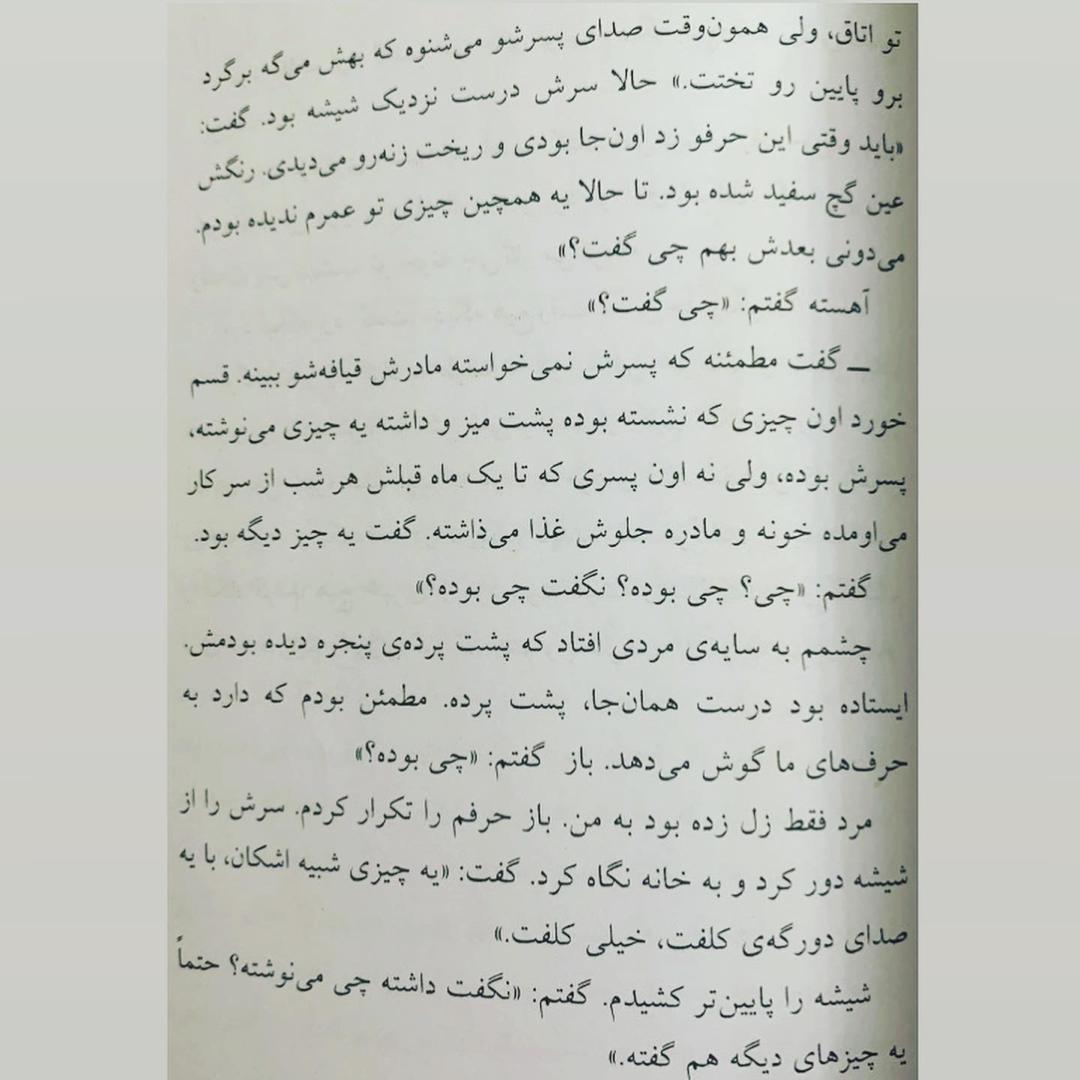 تو اتاق، ولی همون‌وقت صدای پسرشو می‌شنوه که بهش می‌گه برگرد
برو پایین رو تختت.» حالا سرش درست نزدیک شیشه بود. گفت:
«باید وقتی این حرفو زد اون‌جا بودی و ریخت زنه‌رو می‌دیدی. رنگش
عین گچ سفید شده بود. تا حالا یه همچین چیزی تو عمرم ندیده بودم.
می‌دونی بعدش بهم چی گفت؟»
آهسته گفتم: «چی گفت؟»
ـــ گفت مطمئنه که پسرش نمی‌خواسته مادرش قیافه‌شو ببینه. قسم
خورد اون چیزی که نشسته بوده پشت میز و داشته یه چیزی می‌نوشته،
پسرش بوده، ولی نه اون پسری که تا یک ماه قبلش هر شب از سر کار
می‌اومده خونه و مادره جلوش غذا می‌ذاشته. گفت یه چیز دیگه بود.
گفتم: «چی؟ چی بوده؟ نگفت چی بوده؟»
چشمم به سایه‌ی مردی افتاد که پشت پرده‌ی پنجره دیده بودمش.
ایستاده بود درست همان‌جا، پشت پرده. مطمئن بودم که دارد به
حرف‌های ما گوش می‌دهد. باز گفتم: «چی بوده؟»
مرد فقط زل زده بود به من. باز حرفم را تکرار کردم. سرش را از
شیشه دور کرد و به خانه نگاه کرد. گفت: «یه چیزی شبیه اشکان، با یه
صدای دورگه‌ی کلفت، خیلی کلفت.»
شیشه را پایین‌تر کشیدم. گفتم: «نگفت داشته چی می‌نوشته؟ حتماً
یه چیزهای دیگه هم گفته.»